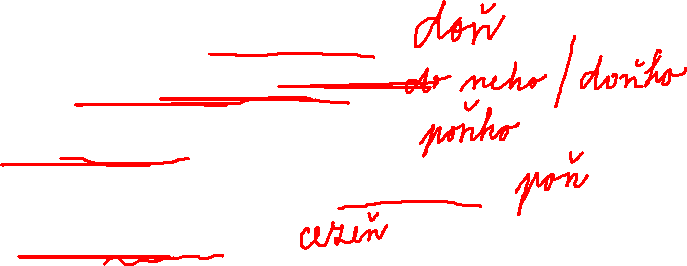 doň
do neho / doňho
poňho
poň
cezeň